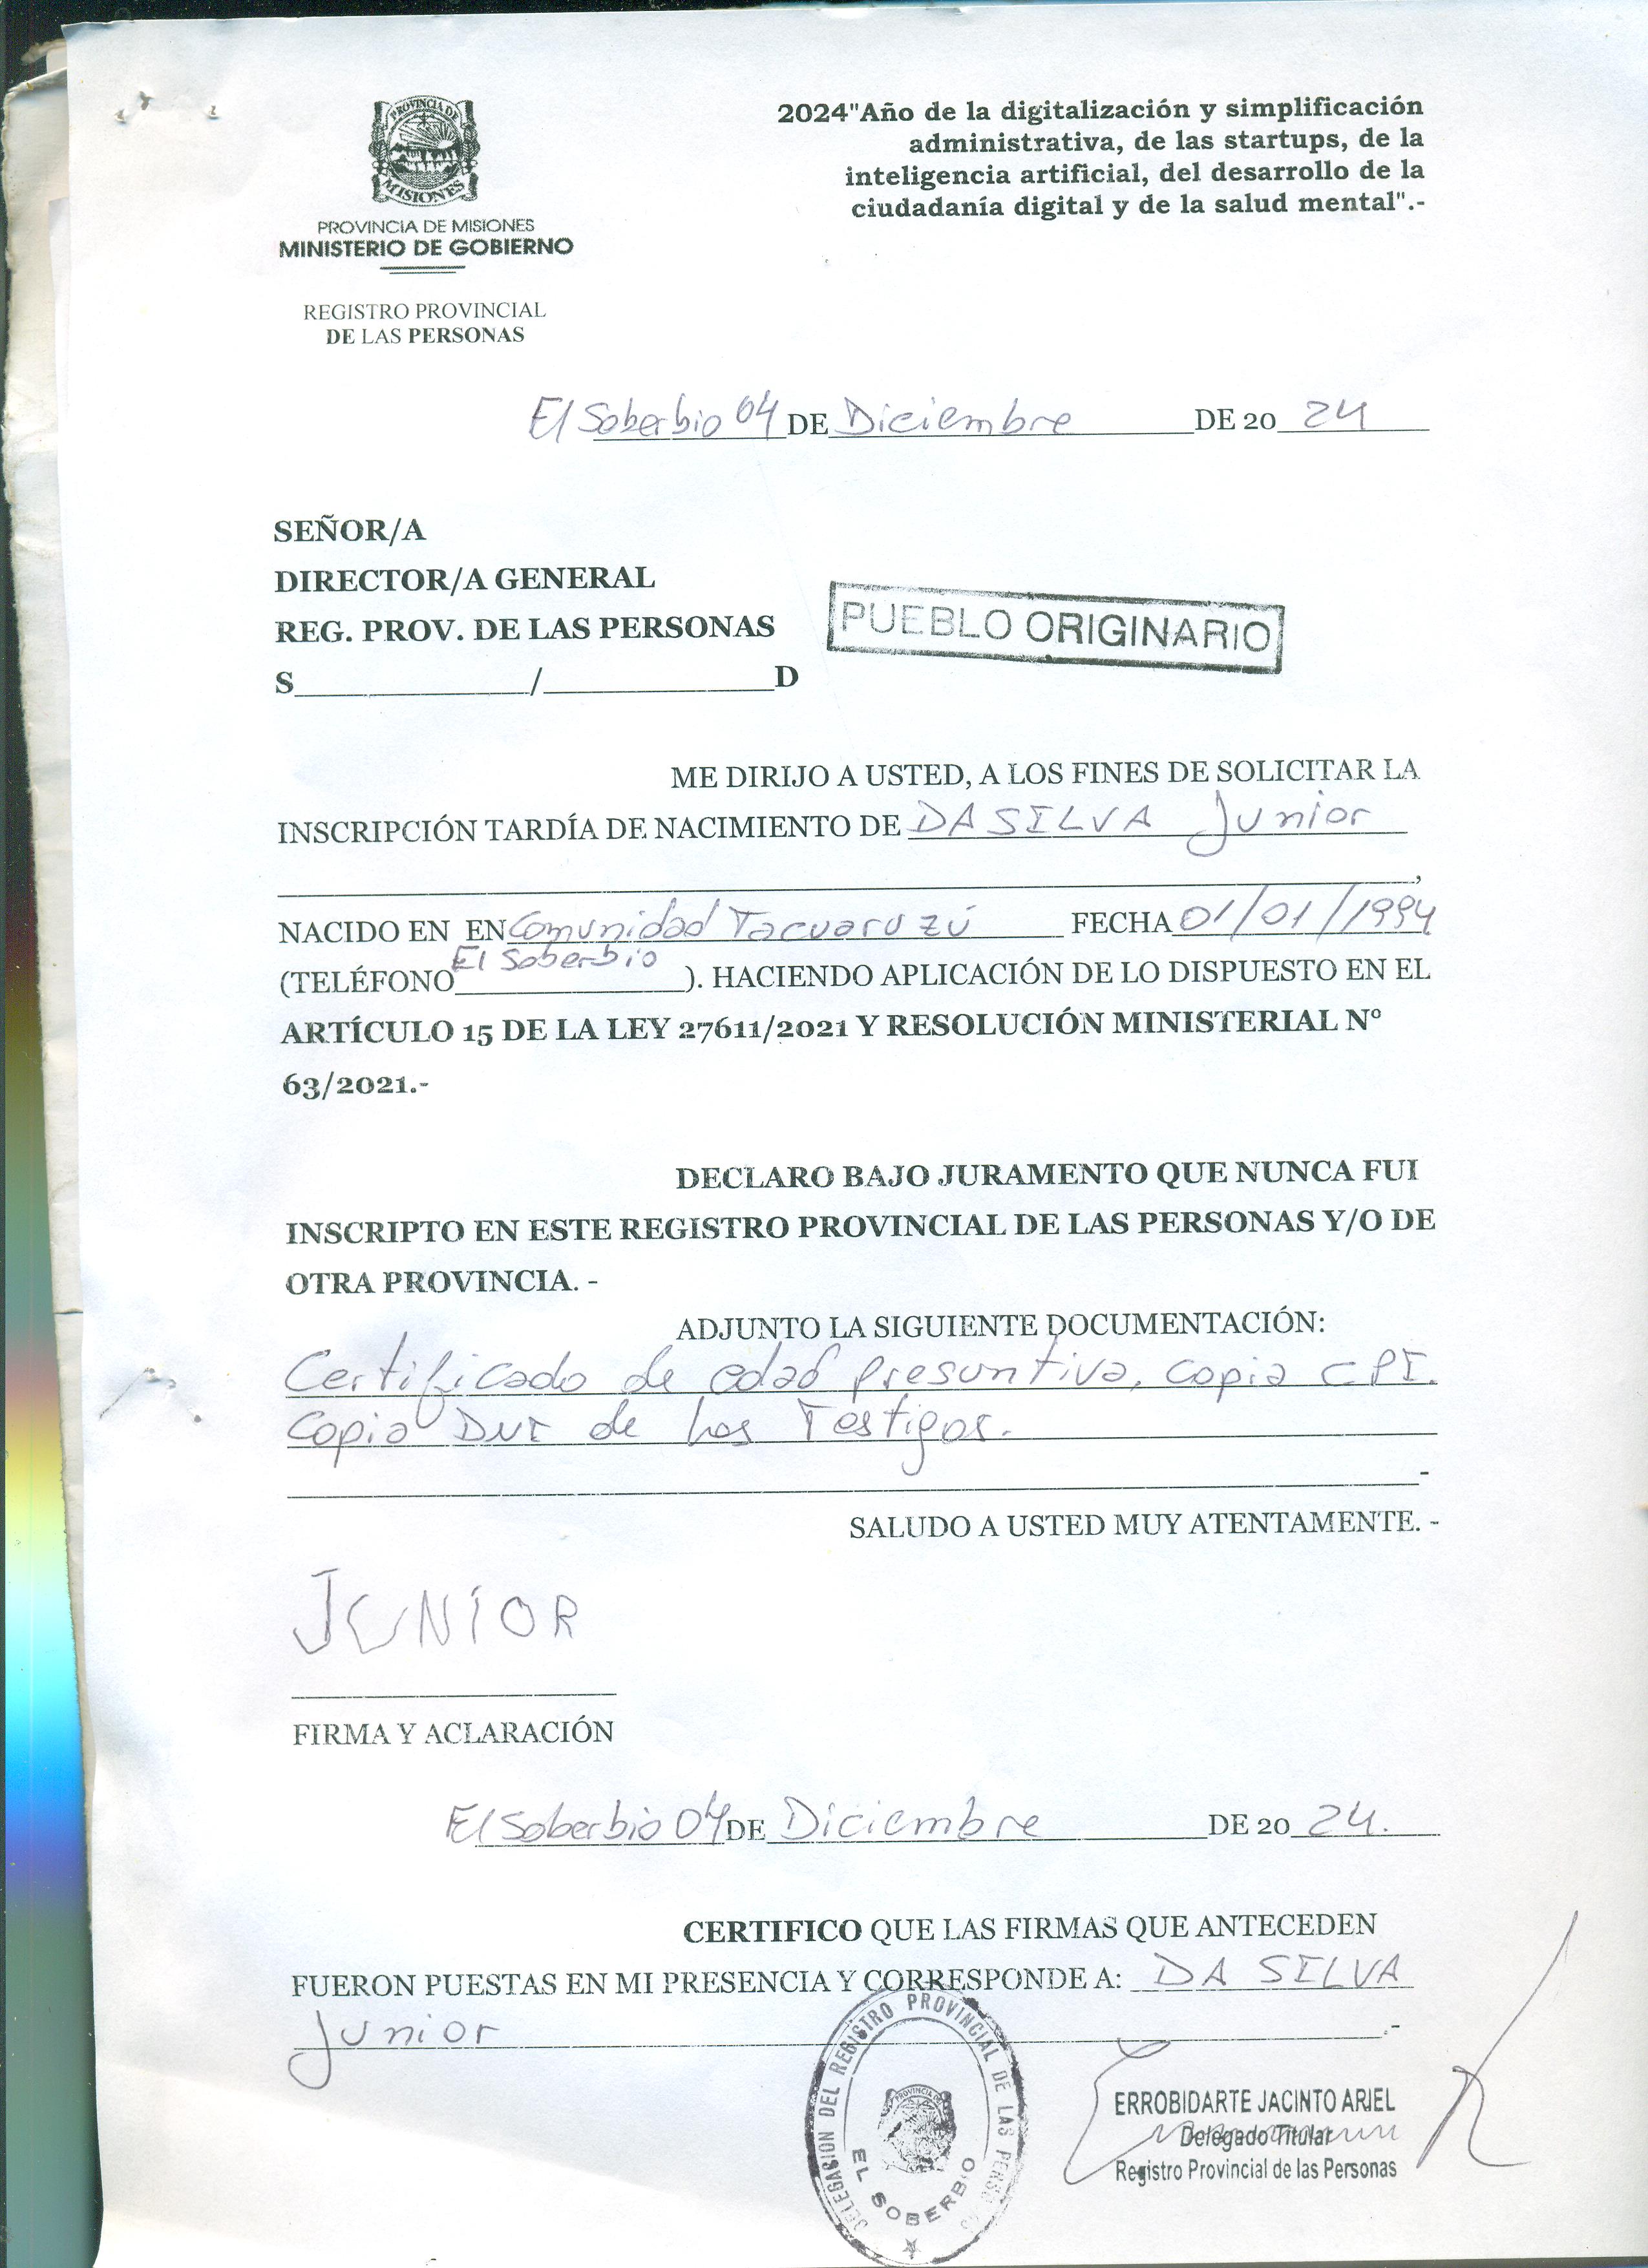 PROVINCIA DE
MISIONES
PROVINCIA DE MISIONES
MINISTERIO DE GOBIERNO
REGISTRO PROVINCIAL
DE LAS PERSONAS
2024"Año de la digitalización y simplificación
administrativa, de las startups, de la
inteligencia artificial, del desarrollo de la
ciudadanía digital y de la salud mental".-
El Soberbio 04 DE Diciembre DE 20 24
SEÑOR/A
DIRECTOR/A GENERAL
REG. PROV. DE LAS PERSONAS
S / D
PUEBLO ORIGINARIO
ME DIRIJO A USTED, A LOS FINES DE SOLICITAR LA
INSCRIPCIÓN TARDÍA DE NACIMIENTO DE DA SILVA Junior
,
NACIDO EN EN Comunidad Tacuaruzú FECHA 01/01/1994
El Soberbio
(TELÉFONO ). HACIENDO APLICACIÓN DE LO DISPUESTO EN EL
ARTÍCULO 15 DE LA LEY 27611/2021 Y RESOLUCIÓN MINISTERIAL N°
63/2021.-
DECLARO BAJO JURAMENTO QUE NUNCA FUI
INSCRIPTO EN ESTE REGISTRO PROVINCIAL DE LAS PERSONAS Y/O DE
OTRA PROVINCIA. -
ADJUNTO LA SIGUIENTE DOCUMENTACIÓN:
Certificado de edad presuntiva, copia CPI.
Copia DNI de los Testigos.
-
SALUDO A USTED MUY ATENTAMENTE. -
JUNIOR
FIRMA Y ACLARACIÓN
El Soberbio 04 DE Diciembre DE 20 24.
CERTIFICO QUE LAS FIRMAS QUE ANTECEDEN
FUERON PUESTAS EN MI PRESENCIA Y CORRESPONDE A: DA SILVA
Junior .-
DELEGASION DEL REGISTRO PROVINCIAL DE LAS
PROVINCIA DE
EL SOBERBIO
ERROBIDARTE JACINTO ARIEL
Delegado Titular
Registro Provincial de las Personas